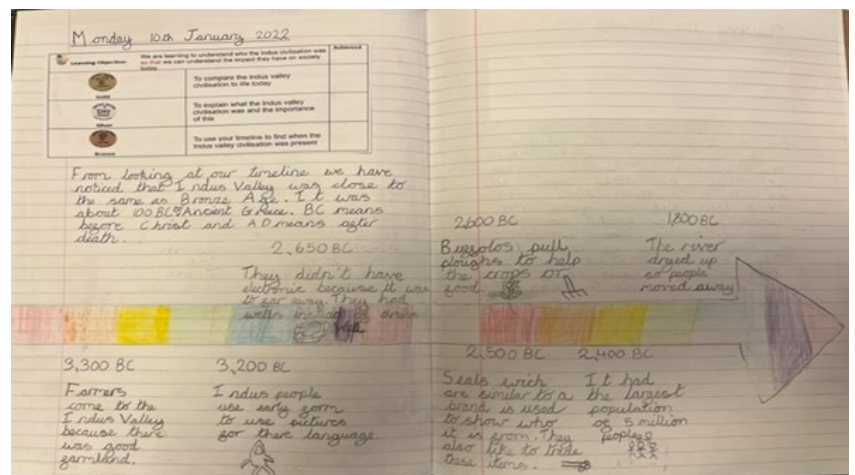 Monday 10th January 2022
Learning Objective
We are learning to understand who the Indus civilisation was
so that we can understand the impact they have on society
today
Achieved
Gold
To compare the Indus valley
civilisation to life today
Silver
To explain what the Indus valley
civilisation was and the importance
of this
Bronze
To use your timeline to find when the
Indus valley civilisation was present
From looking at our timeline we have
noticed that Indus Valley was close to
the same as Bronze Age. It was
about 100 BC Ancient
before Christ and AD means after
death.
2,650 BC
They didn't have
electronic because it was
to far away. They had
wells instead of
3,300 BC
Farmers
come to the
Indus Valley
because there
was good
farmland.
3,200 BC
Indus people
use early form
to use pictures
for there language.
2,600 BC
Buffolos pull
ploughs to help
the crops or
good.
1,800 BC
The river
dryed up
so people
moved away
2,500 BC
Seals wich
are similar to a
brand is used
to show who
it is from. They
also like to trade
these items.
2,400 BC
It had
the largest
population
of 5 million
people